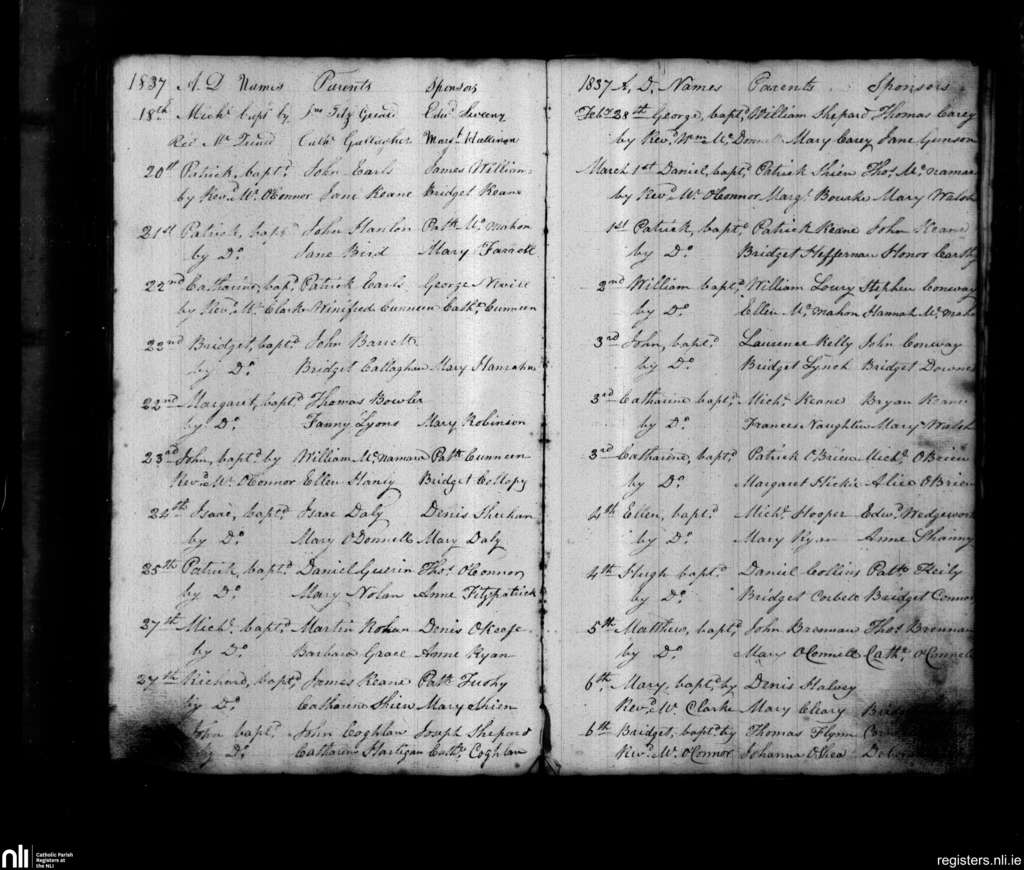 1837 A. D Names Parents Sponsors
18th Michl bapd by Jno Fitz Gerald Edwd Sweeny
Revd Mr Cathe Gallagher Margt Hallinan
20th Patrick, baptd John Earls James Williams
by Revd Mr O'Connor Jane Keane Bridget Keane
21st Patrick, bapd John Hanlon Patk McMahon
by Do Jane Bird Mary Farrell
22nd Catharine, bapd Patrick Earls George Nevill
by Revd Mr Clarke Winifred Cunneen Cathe Cunneen
22nd Bridget, baptd John Barrett
by Do Bridget Callaghan Mary Hanrahan
22nd Margaret, baptd Thomas Bowler
by Do Fanny Lyons Mary Robinson
23rd John, baptd by William McNamara Patk Cunneen
Revd Mr O'Connor Ellen Haney Bridget Collopy
24th Isaac, baptd Isaac Daly Denis Sheehan
by Do Mary O'Donnell Mary Daly
25th Patrick, baptd Daniel Guerin Thos O'Connor
by Do Mary Nolan Anne Fitzpatrick
27th Michl baptd Martin Rohan Denis O'Keefe
by Do Barbara Grace Anne Ryan
27th Richard, baptd James Keane Patk Tuohy
by Do Catharine Shien Mary Shien
John baptd John Coghlan Joseph Shepard
by Do Catharine Hartigan Cathe Coghlan
1837 A. D. Names Parents Sponsors
Feby 28th George, baptd William Shepard Thomas Carey
by Revd Wm McDonnell Mary Carey Jane Gunson
March 1st Daniel, baptd Patrick Shien Thos McNamara
by Revd Mr O'Connor Margt Bourke Mary Walsh
1st Patrick, baptd Patrick Keane John Keane
by Do Bridget Heffernan Honor Carthy
2nd William baptd William Loury Stephen Conway
by Do Ellen McMahon Hannah McMaho
3rd John, baptd Laurence Kelly John Conway
by Do Bridget Lynch Bridget Downe
3rd Catharine baptd Michl Keane Bryan Keane
by Do Frances Naughton Mary Walsh
3rd Catharine, baptd Patrick O'Brien Michl O'Brien
by Do Margaret Hickie Alice O'Brien
4th Ellen, baptd Michl Hooper Edwd Wedgewort
by Do Mary Ryan Anne Shanny
4th Hugh baptd Daniel Collins Patk Heily
by Do Bridget Corbett Bridget Connor
5th Matthew, baptd John Brennan Thos Brennan
by Do Mary O'Connell Cathe O'Connell
6th Mary, baptd by Denis Halvey
Revd Mr Clarke Mary Cleary
6th Bridget, baptd by Thomas Flynn
Revd Mr O'Connor Johanna O'Shea
nli Catholic Parish
Registers at
the NLI
registers.nli.ie